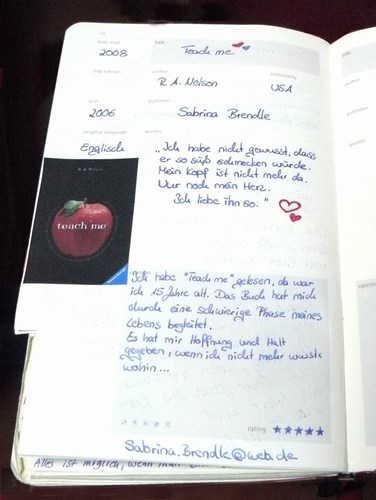 date read
title
2008
Teach me
first edition
author
nationality
R. A. Nelson
USA
year
publisher
2006
Sabrina Brendle
original language
quotes
Englisch
„Ich habe nicht gewusst, dass
er so süß schmecken würde.
Mein Kopf ist nicht mehr da.
Nur noch mein Herz.
Ich liebe ihn so."
teach me
Ich habe "Teach me" gelesen, da war
ich 15 Jahre alt. Das Buch hat mich
durch eine schwierige Phase meines
Lebens begleitet.
Es hat mir Hoffnung und Halt
gegeben, wenn ich nicht mehr wusste
wohin...
rating
Sabrina.Brendle@web.de
Alles ist möglich, wenn man